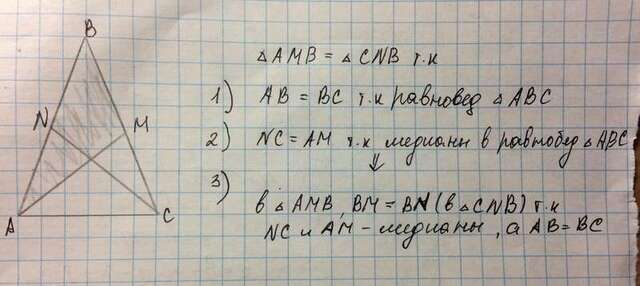 B
N
M
A
C
△AMB = △CNB т.к
1) AB = BC т.к равновед △ABC
2) NC = AM т.к медианы в равнобед △ABC
⇓
3)
в △AMB, BM = BN (в △CNB) т.к
NC и AM - медианы, а AB = BC